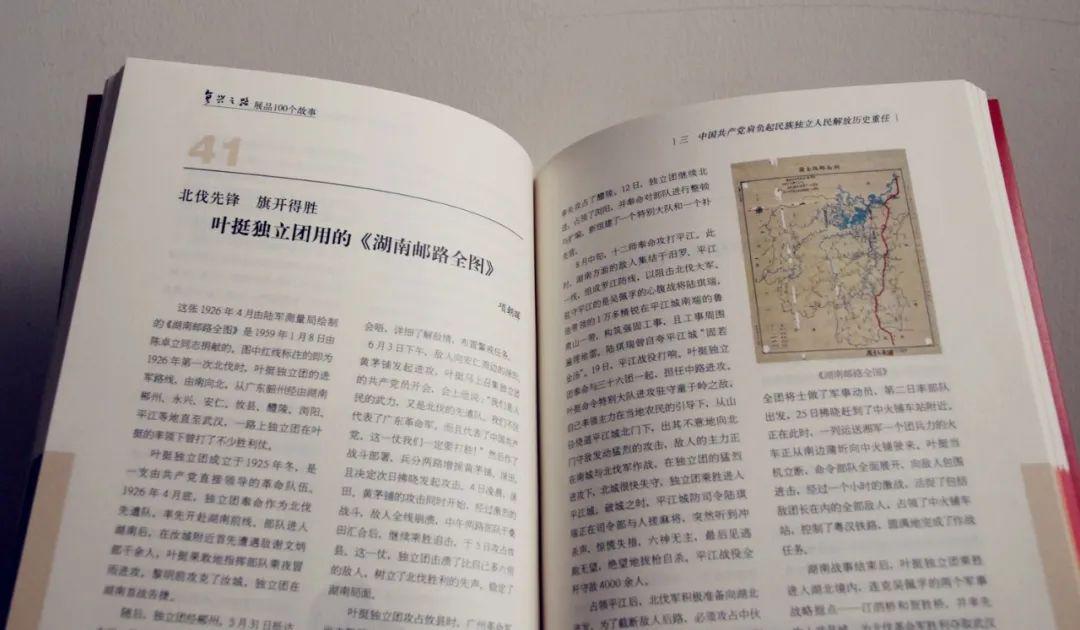 复兴之路 展品100个故事
41
北伐先锋 旗开得胜
叶挺独立团用的《湖南邮路全图》
这张1926年4月由陆军测量局绘制
的《湖南邮路全图》是1959年1月8日由
陈卓立同志捐献的。图中红线标注的即为
1926年第一次北伐时，叶挺独立团的进
军路线，由南向北，从广东韶州经由湖南
郴州、永兴、安仁、攸县、醴陵、浏阳、
平江等地直至武汉，一路上独立团在叶
挺的率领下曾打了不少胜利仗。
叶挺独立团成立于1925年冬，是
一支由共产党直接领导的革命队伍。
1926年4月底，独立团奉命作为北伐
先遣队，率先开赴湖南前线，部队进人
湖南后，在汝城附近首先遭遇敌谢文炳
部千余人，叶挺果敢地指挥部队乘夜冒
雨进攻，黎明前攻克了汝城，独立团在
湖南首战告捷。
随后，独立团经郴州，5月31日抵达
会晤，详细了解敌情，布置警戒任务。
6月3日下午，敌人向安仁周边的渌田、
黄茅铺发起进攻，叶挺马上召集独立团
的共产党员开会，会上他说：“我们是人
民的武力，又是北伐的先遣队，我们不仅
代表了广东革命军，而且代表了中国共产
党，这一仗我们一定要打胜！”然后作了
战斗部署，兵分两路增援黄茅铺、渌田，
且决定次日拂晓发起攻击。4日凌晨，渌
田、黄茅铺的攻击同时开始，经过激烈的
战斗，敌人全线崩溃，中午两路部队于桑
田汇合后，继续乘胜追击，于5日攻占攸
县。这一仗，独立团击溃了比自己多六倍
的敌人，树立了北伐胜利的先声，稳定了
湖南局面。
叶挺独立团攻占攸县时，广州革命军
三 中国共产党肩负起民族独立人民解放历史重任
事先攻占了醴陵。12日，独立团继续北
进，占领了浏阳，并奉命对部队进行整顿
与扩编，新组建了一个特别大队和一个补
充营。
8月中旬，十二师奉命攻打平江。此
时，湖南方面的敌人集结于汨罗、平江
一线，组成汨江防线，以阻击北伐大军。
驻守平江的是吴佩孚的心腹战将陆琪瑞，
他带领的1万多精锐在平江城南端的鲁
肃山一带，构筑强固工事，且工事周围
遍埋地雷。陆琪瑞曾自夸平江城“固若
金汤”。19日，平江战役打响。叶挺独立
团奉命与三十六团一起，担任中路进攻。
叶挺命令特别大队进攻驻守童子岭之敌，
自己率领主力在当地农民的引导下，从山
径绕道平江城北门下，出其不意地向北
门守敌发动猛烈的攻击，敌人的主力正
在南城与北伐军作战，在独立团的猛烈
进攻下，北城很快失守，独立团乘胜进人
平江城。破城之时，平江城防司令陆琪
瑞正在司令部与人搓麻将，突然听到冲
杀声，惊慌失措，六神无主，最后见逃
跑无望，绝望地拔枪自杀。平江战役全
歼守敌4000余人。
占领平江后，北伐军积极准备向湖北
进发。为了截断敌人后路，必须攻占中伙
《湖南邮路全图》
全团将士做了军事动员，第二日率部队
出发，25日拂晓赶到了中火铺车站附近。
正在此时，一列运送湘军一个团兵力的火
车正从南边蒲圻向中火铺驶来，叶挺当
机立断，命令部队全面展开，向敌人包围
进击，经过一个小时的激战，活捉了包括
敌团长在内的全部敌人，占领了中火铺车
站，控制了粤汉铁路，圆满地完成了作战
任务。
湖南战事结束后，叶挺独立团乘胜
进人湖北境内，连克吴佩孚的两个军事
战略据点——汀泗桥和贺胜桥，并率先